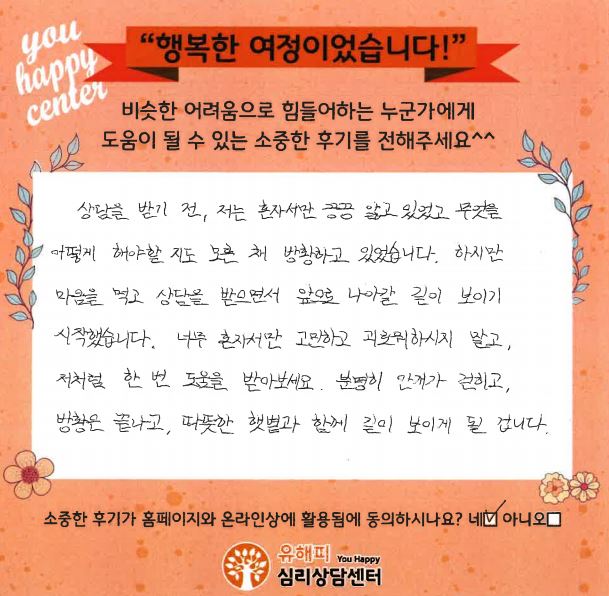 you
happy
center
“행복한 여정이었습니다!”
비슷한 어려움으로 힘들어하는 누군가에게
도움이 될 수 있는 소중한 후기를 전해주세요^^
상담을 받기 전, 저는 혼자서만 끙끙 앓고 있었고 무엇을
어떻게 해야할 지도 모른 채 방황하고 있었습니다. 하지만
마음을 먹고 상담을 받으면서 앞으로 나아갈 길이 보이기
시작했습니다. 너무 혼자서만 고민하고 괴로워하시지 말고,
저처럼 한 번 도움을 받아보세요. 분명히 안개가 걷히고,
방황은 끝나고, 따뜻한 햇볕과 함께 길이 보이게 될 겁니다.
소중한 후기가 홈페이지와 온라인상에 활용됨에 동의하시나요? 네☑ 아니오☐
유해피 You Happy
심리상담센터